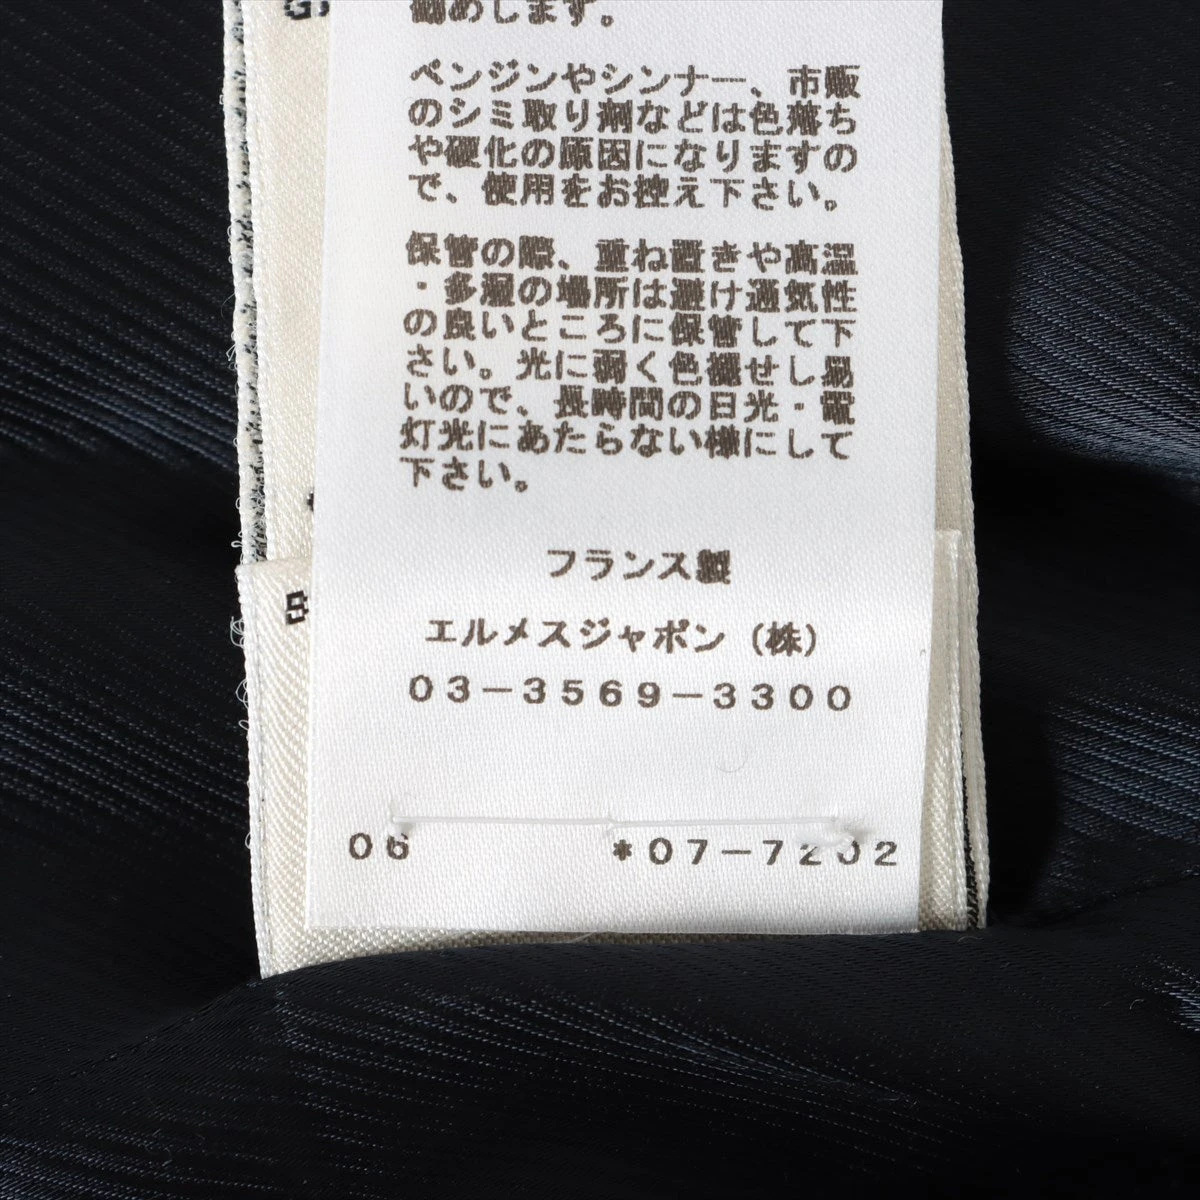 勧めします。
ベンジンやシンナー、市販
のシミ取り剤などは色落ち
や硬化の原因になりますの
で、使用をお控え下さい。
保管の際、重ね置きや高温
・多湿の場所は避け通気性
の良いところに保管して下
さい。光に弱く色褪せし易
いので、長時間の日光・電
灯光にあたらない様にして
下さい。
フランス製
エルメスジャポン（株）
03-3569-3300
06 *07-7202